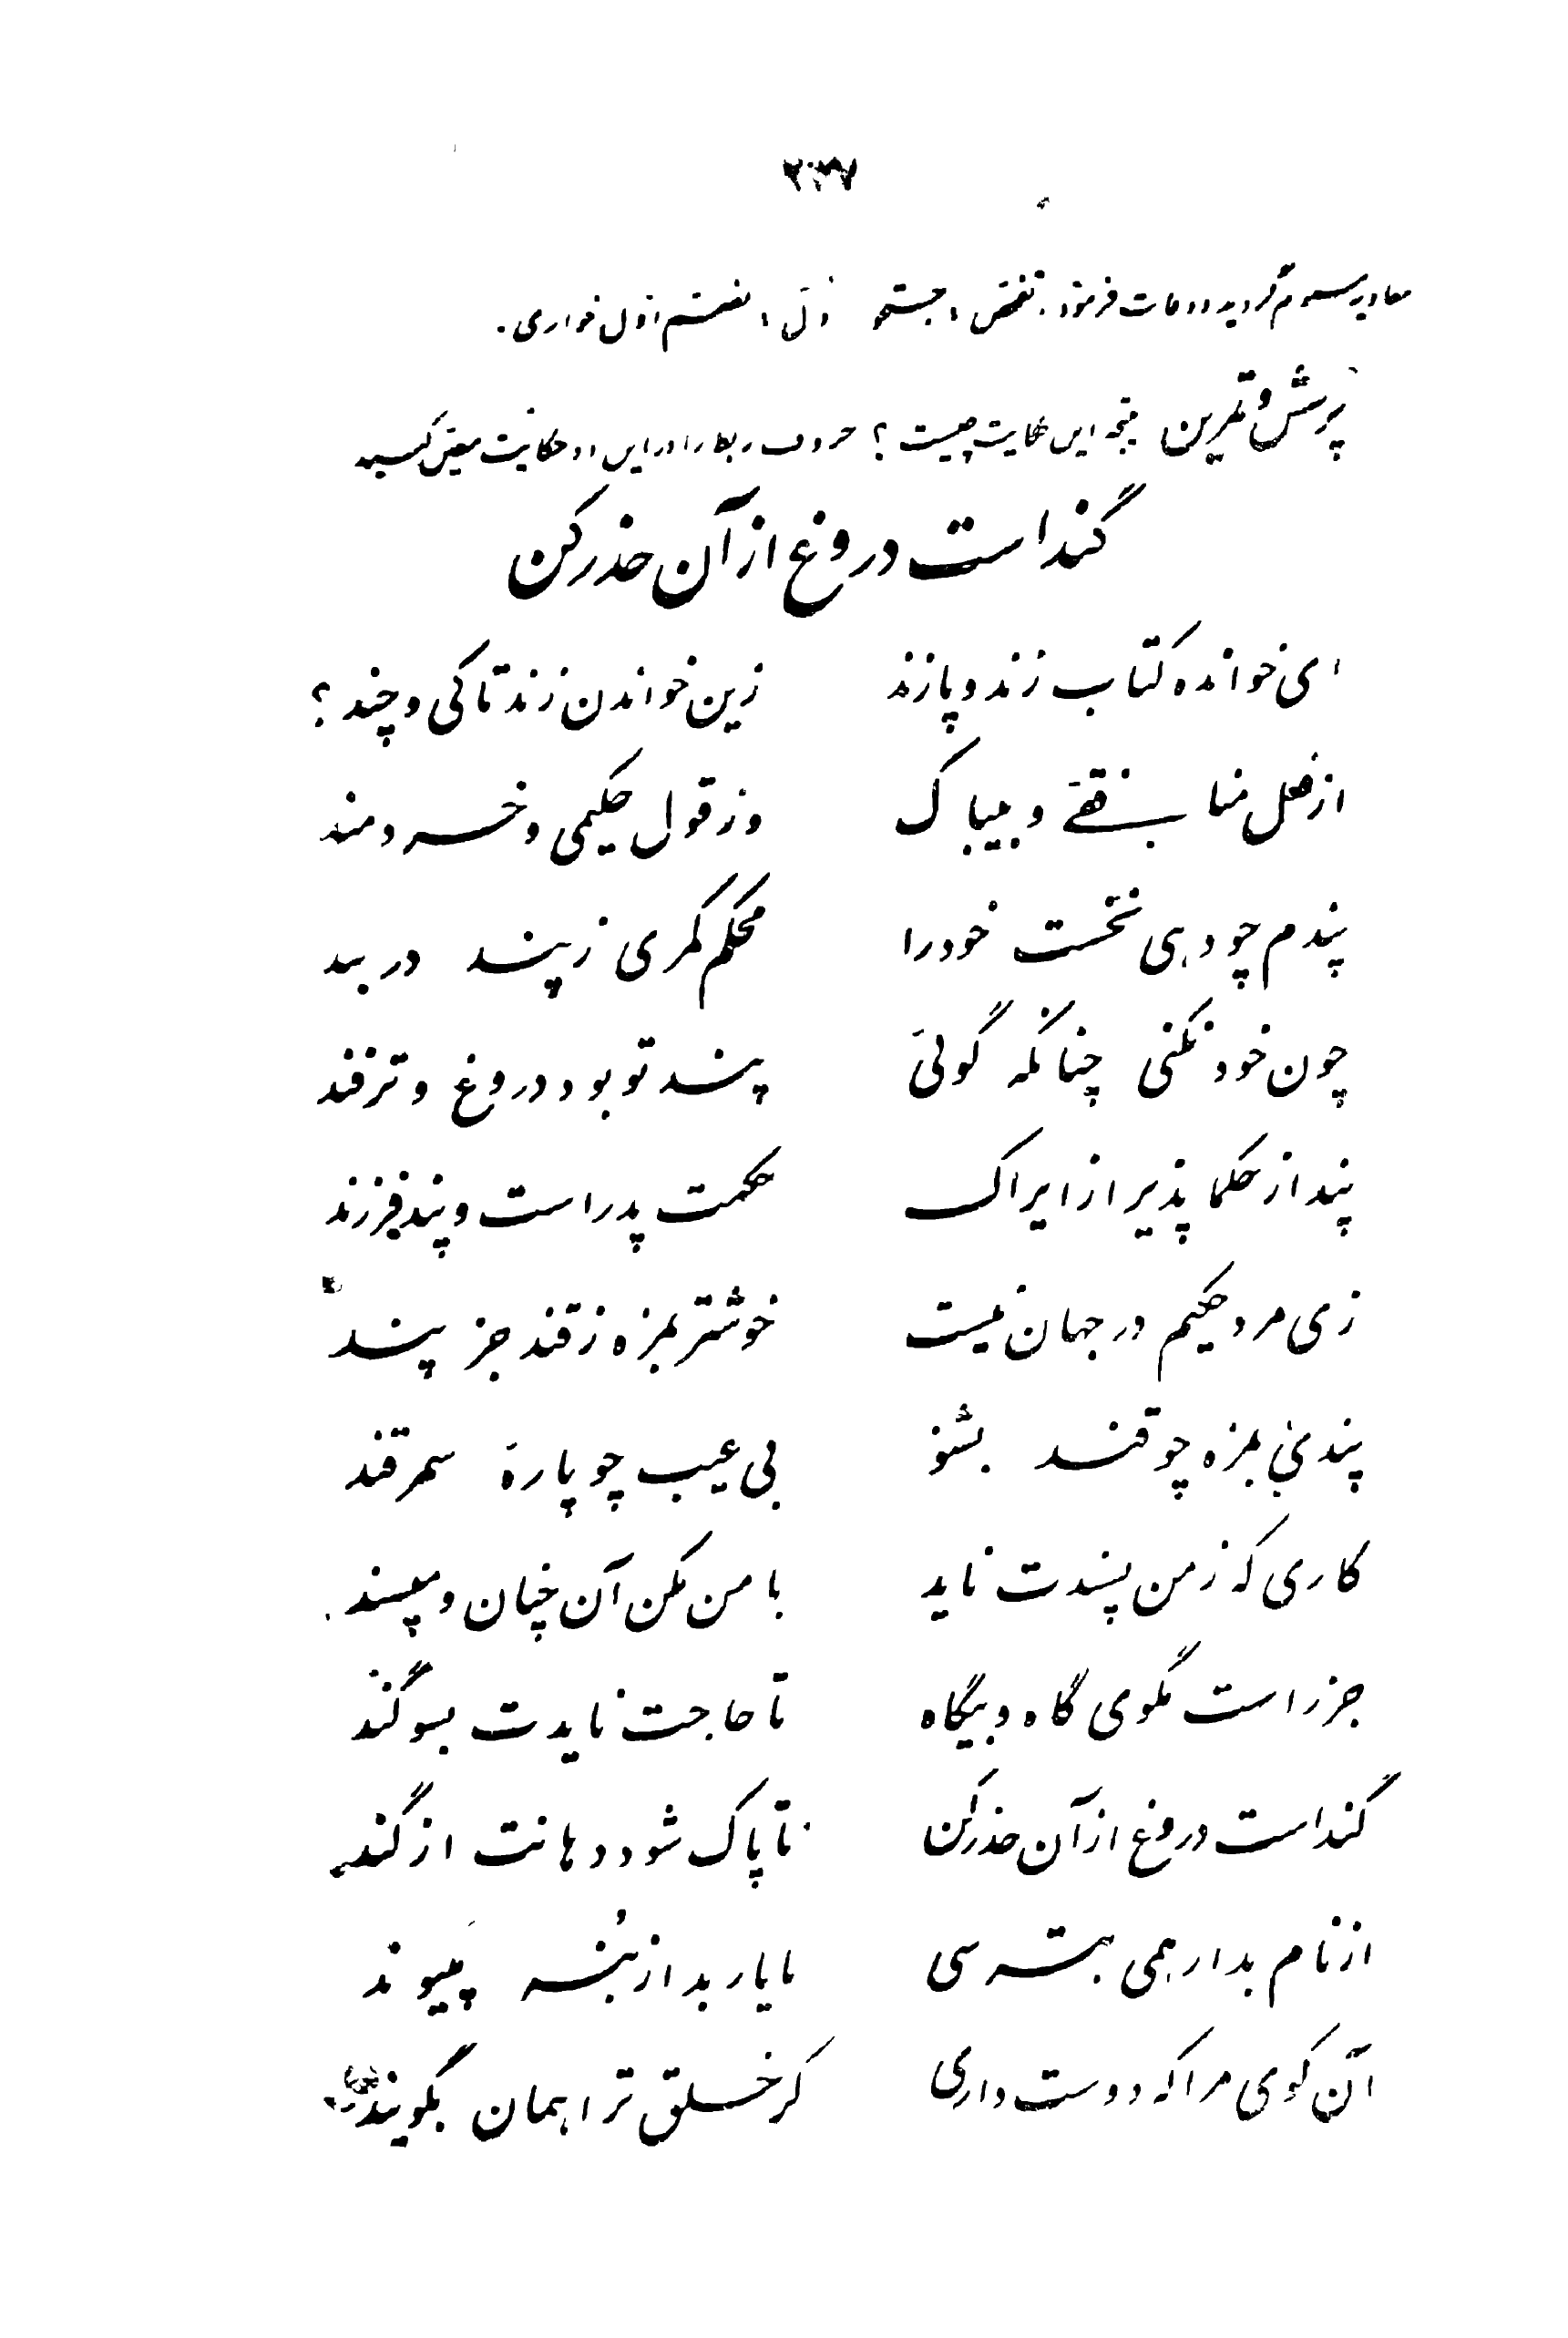 ۲۳۷
معاویه مسموم گردیده وفات فرمود. تفحص، جستجو ذل، بضم اول خواری.
پرسش و تمرین نتیجه این حکایت چیست؟ حروف ربط را در این دو حکایت معین کنید
گند است دروغ از آن حذر کن
ای خوانده کتاب زند و پازند زین خواندن زند تا کی و چند؟
از فعل منافقی و بیباک وز قول حکیمی و خردمند
پندم چو دهی نخست خود را محکم کمری ز پند در بند
چون خود نکنی چنانکه گوئی پند تو بود دروغ و ترفند
پند از حکما پذیر ازیراک حکمت پدر است و پند فرزند
زی مرد حکیم در جهان نیست خوشتر بمزه ز قند جز پند
پندی بمزه چو قند بشنو بی عیب چو پارهٔ سمرقند
کاری که ز من پسندت ناید با من مکن آن چنان و مپسند
جز راست مگوی گاه و بیگاه تا حاجت نایدت بسوگند
گند است دروغ از آن حذر کن تا پاک شود دهانت از گند
از نام بد ار همی بترسی با یار بد از بنه مپیوند
آن گوی مرا که دوست داری گر خلق ترا همان بگویند